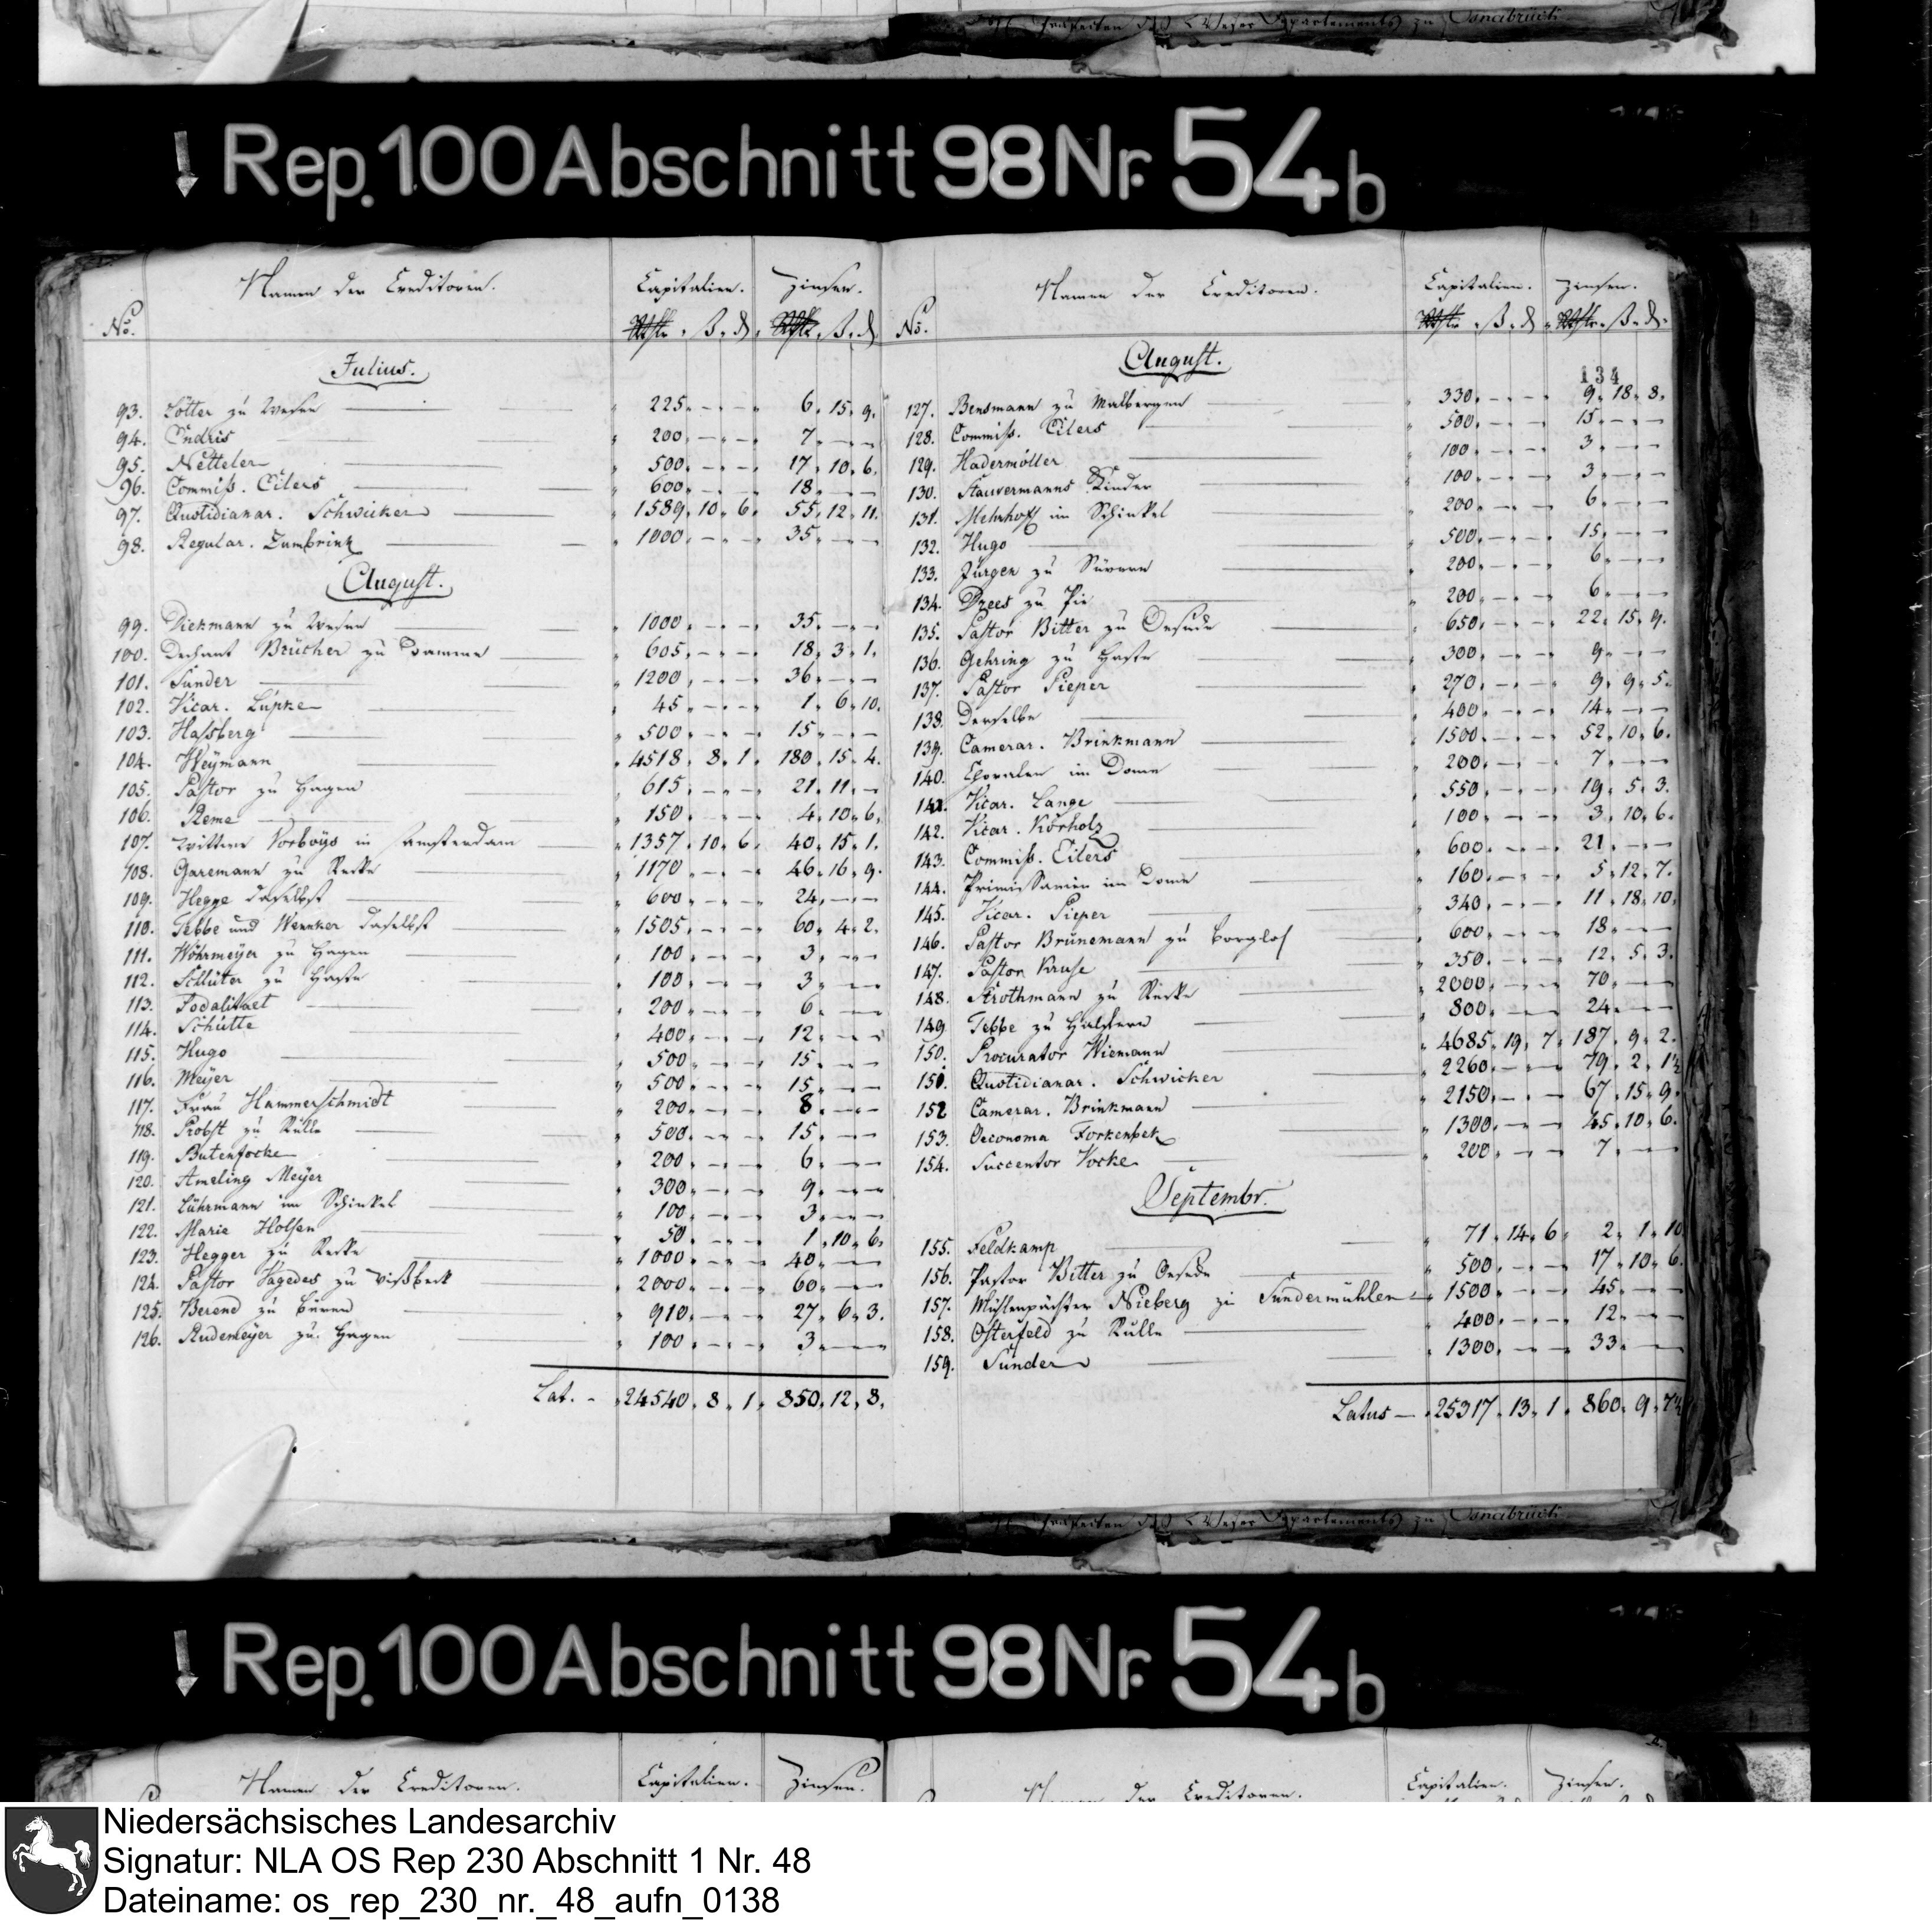 Präfecten des Weser Departements zu Osnabrück
Rep. 100 Abschnitt 98 Nr. 54 b
Namen der Creditoren. Capitalien. Zinsen.
No. Rthlr. ß. d. Rthlr. ß. d.
Julius.
93. Lötter zu Wesen 225. 6. 15. 9.
94. Endris 200. 7.
95. Netteler 500. 17. 10. 6.
96. Commiss. Eilers 600. 18.
97. Quotidianar. Schwicker 1589. 10. 6. 55. 12. 11.
98. Regular. Zumbrink 1000. 35.
August.
99. Diekmann zu Wesen 1000. 35.
100. Dechant Brücher zu Damme 605. 18. 3. 1.
101. Sunder 1200. 36.
102. Vicar. Lüpke 45. 1. 6. 10.
103. Hassberg 500. 15.
104. Weÿmann 4518. 8. 1. 180. 15. 4.
105. Pastor zu Hagen 615. 21. 11.
106. Reme 150. 4. 10. 6.
107. Wittwe Vorboÿs in Amsterdam 1357. 10. 6. 40. 15. 1.
108. Garemann zu Recke 1170 46. 16. 9.
109. Hegge daselbst 600 24.
110. Tebbe und Wennker daselbst 1505. 60. 4. 2.
111. Wöhrmeÿer zu Hagen 100 3.
112. Schlüter zu Haste 100. 3.
113. Sodalitaet 200. 6.
114. Schütte 400. 12.
115. Hugo 500. 15.
116. Meÿer 500. 15.
117. Frau Hammerschmidt 200. 8.
118. Probst zu Rulle 500. 15.
119. Butenfocke 200. 6.
120. Ameling Meÿer 300. 9.
121. Lührmann im Schinkel 100. 3.
122. Marie Holsen 50. 1. 10. 6.
123. Hegger zu Recke 1000. 40.
124. Pastor Vagedes zu Vißbeck 2000. 60.
125. Berend zu Büren 910. 27. 6. 3.
126. Rudemeÿer zu Hagen 100. 3.
Lat. 24540. 8. 1. 850. 12. 8.
Namen der Creditoren. Capitalien. Zinsen.
No. Rthlr. ß. d. Rthlr. ß. d.
134
August.
127. Bensmann zu Malbergen 330. 9. 18. 8.
128. Commiss. Eilers 500. 15.
129. Hadermöller 100. 3.
130. Stauvermanns Kinder 100. 3.
131. Mehrhoff im Schinkel 200. 6.
132. Hugo 500. 15.
133. Jürgen zu 200. 6.
134. Drees zu Pie 200. 6.
135. Pastor Bitter zu Oesede 650. 22. 15. 9.
136. Gehring zu Haste 300. 9.
137. Pastor Pieper 270. 9. 9. 5.
138. Derselbe 400. 14.
139. Camerar. Brinkmann 1500. 52. 10. 6.
140. Choralen im Dome 200. 7.
141. Vicar. Lange 550. 19. 5. 3.
142. Vicar. Körholz 100. 3. 10. 6.
143. Commiss. Eilers 600. 21.
144. Primissarien im Dome 160. 5. 12. 7.
145. Vicar. Pieper 340. 11. 18. 10.
146. Pastor Brünemann zu Borgloh 600. 18.
147. Pastor Kruse 350. 12. 5. 3.
148. Strothmann zu Recke 2000. 70.
149. Tebbe zu Halvern 800. 24.
150. Procurator Wiemann 4685. 19. 7. 187. 9. 2.
151. Quotidianar. Schwicker 2260. 79. 2. 1½
152 Camerar. Brinkmann 2150. 67. 15. 9.
153. Oeconoma Forkenbek 1300. 45. 10. 6.
154. Succentor Vocke 200. 7.
Septembr.
155. Feldkamp 71. 14. 6. 2. 1. 10.
156. Pastor Bitter zu Oesede 500. 17. 10. 6.
157. Mühlenpächter Nieberg zu Sundermühlen 1500. 45.
158. Osterfeld zu Rulle 400. 12.
159. Sunder 1300. 33.
Latus 25317. 13. 1. 860. 9. 7½
Präfecten des Weser Departements zu Osnabrück
Rep. 100 Abschnitt 98 Nr. 54 b
Namen der Creditoren. Capitalien. Zinsen.
Namen der Creditoren. Capitalien. Zinsen.
Niedersächsisches Landesarchiv
Signatur: NLA OS Rep 230 Abschnitt 1 Nr. 48
Dateiname: os_rep_230_nr._48_aufn_0138